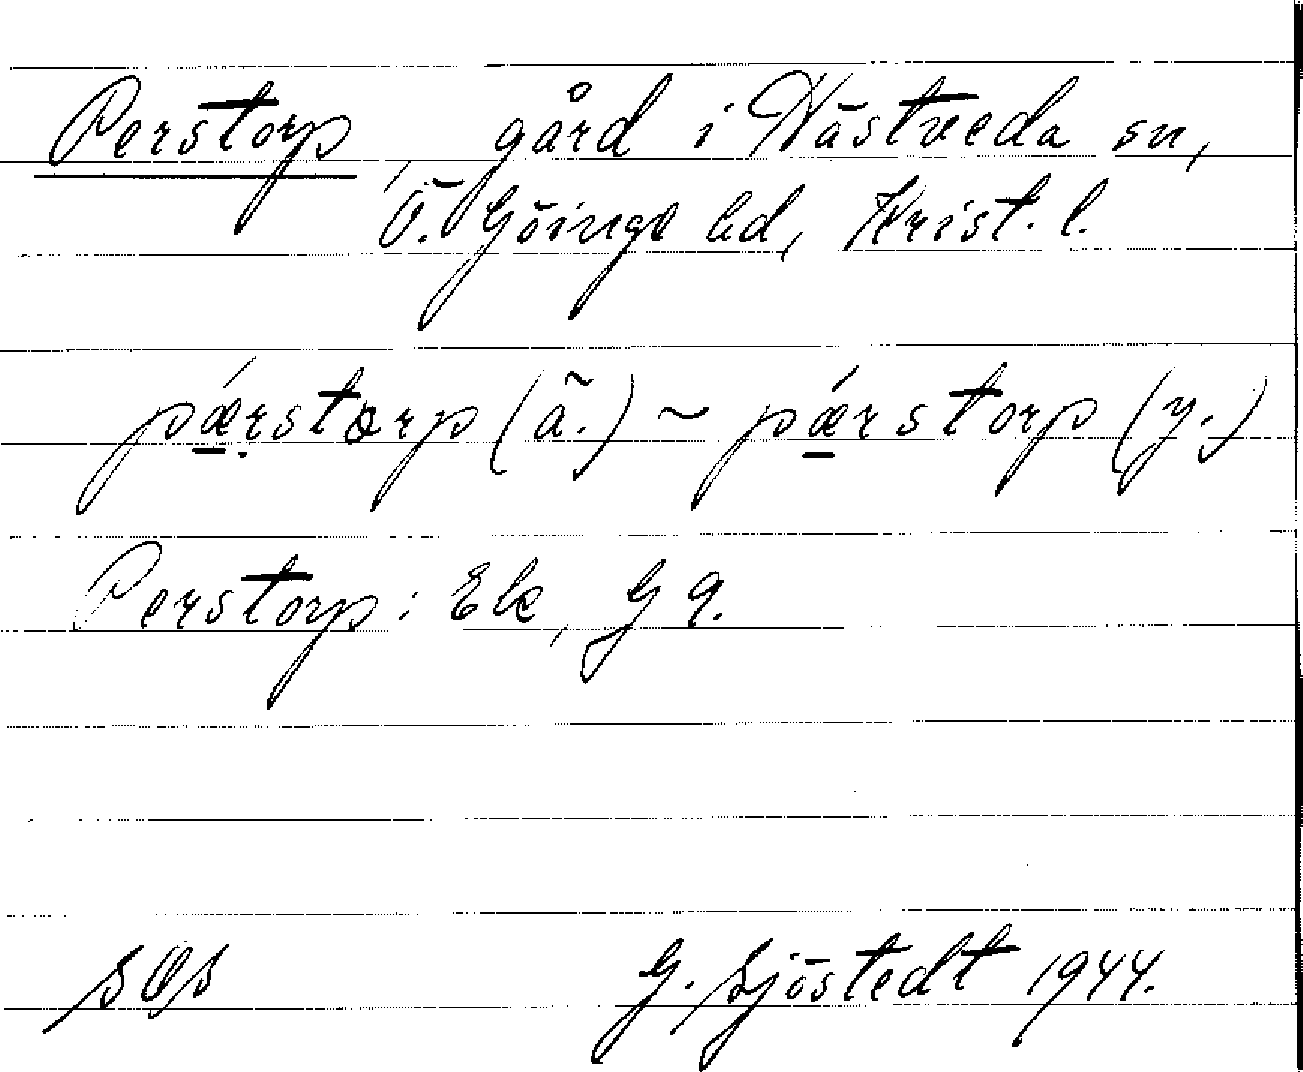 Perstorp, gård i Nästveda sn,
Ö. Göinge hd, Krist. l.
pǽ̱rstorp (ä.) ~ pǽ̱rstorp (y.)
Perstorp: Ek, G 9.
G. Sjöstedt 1944.